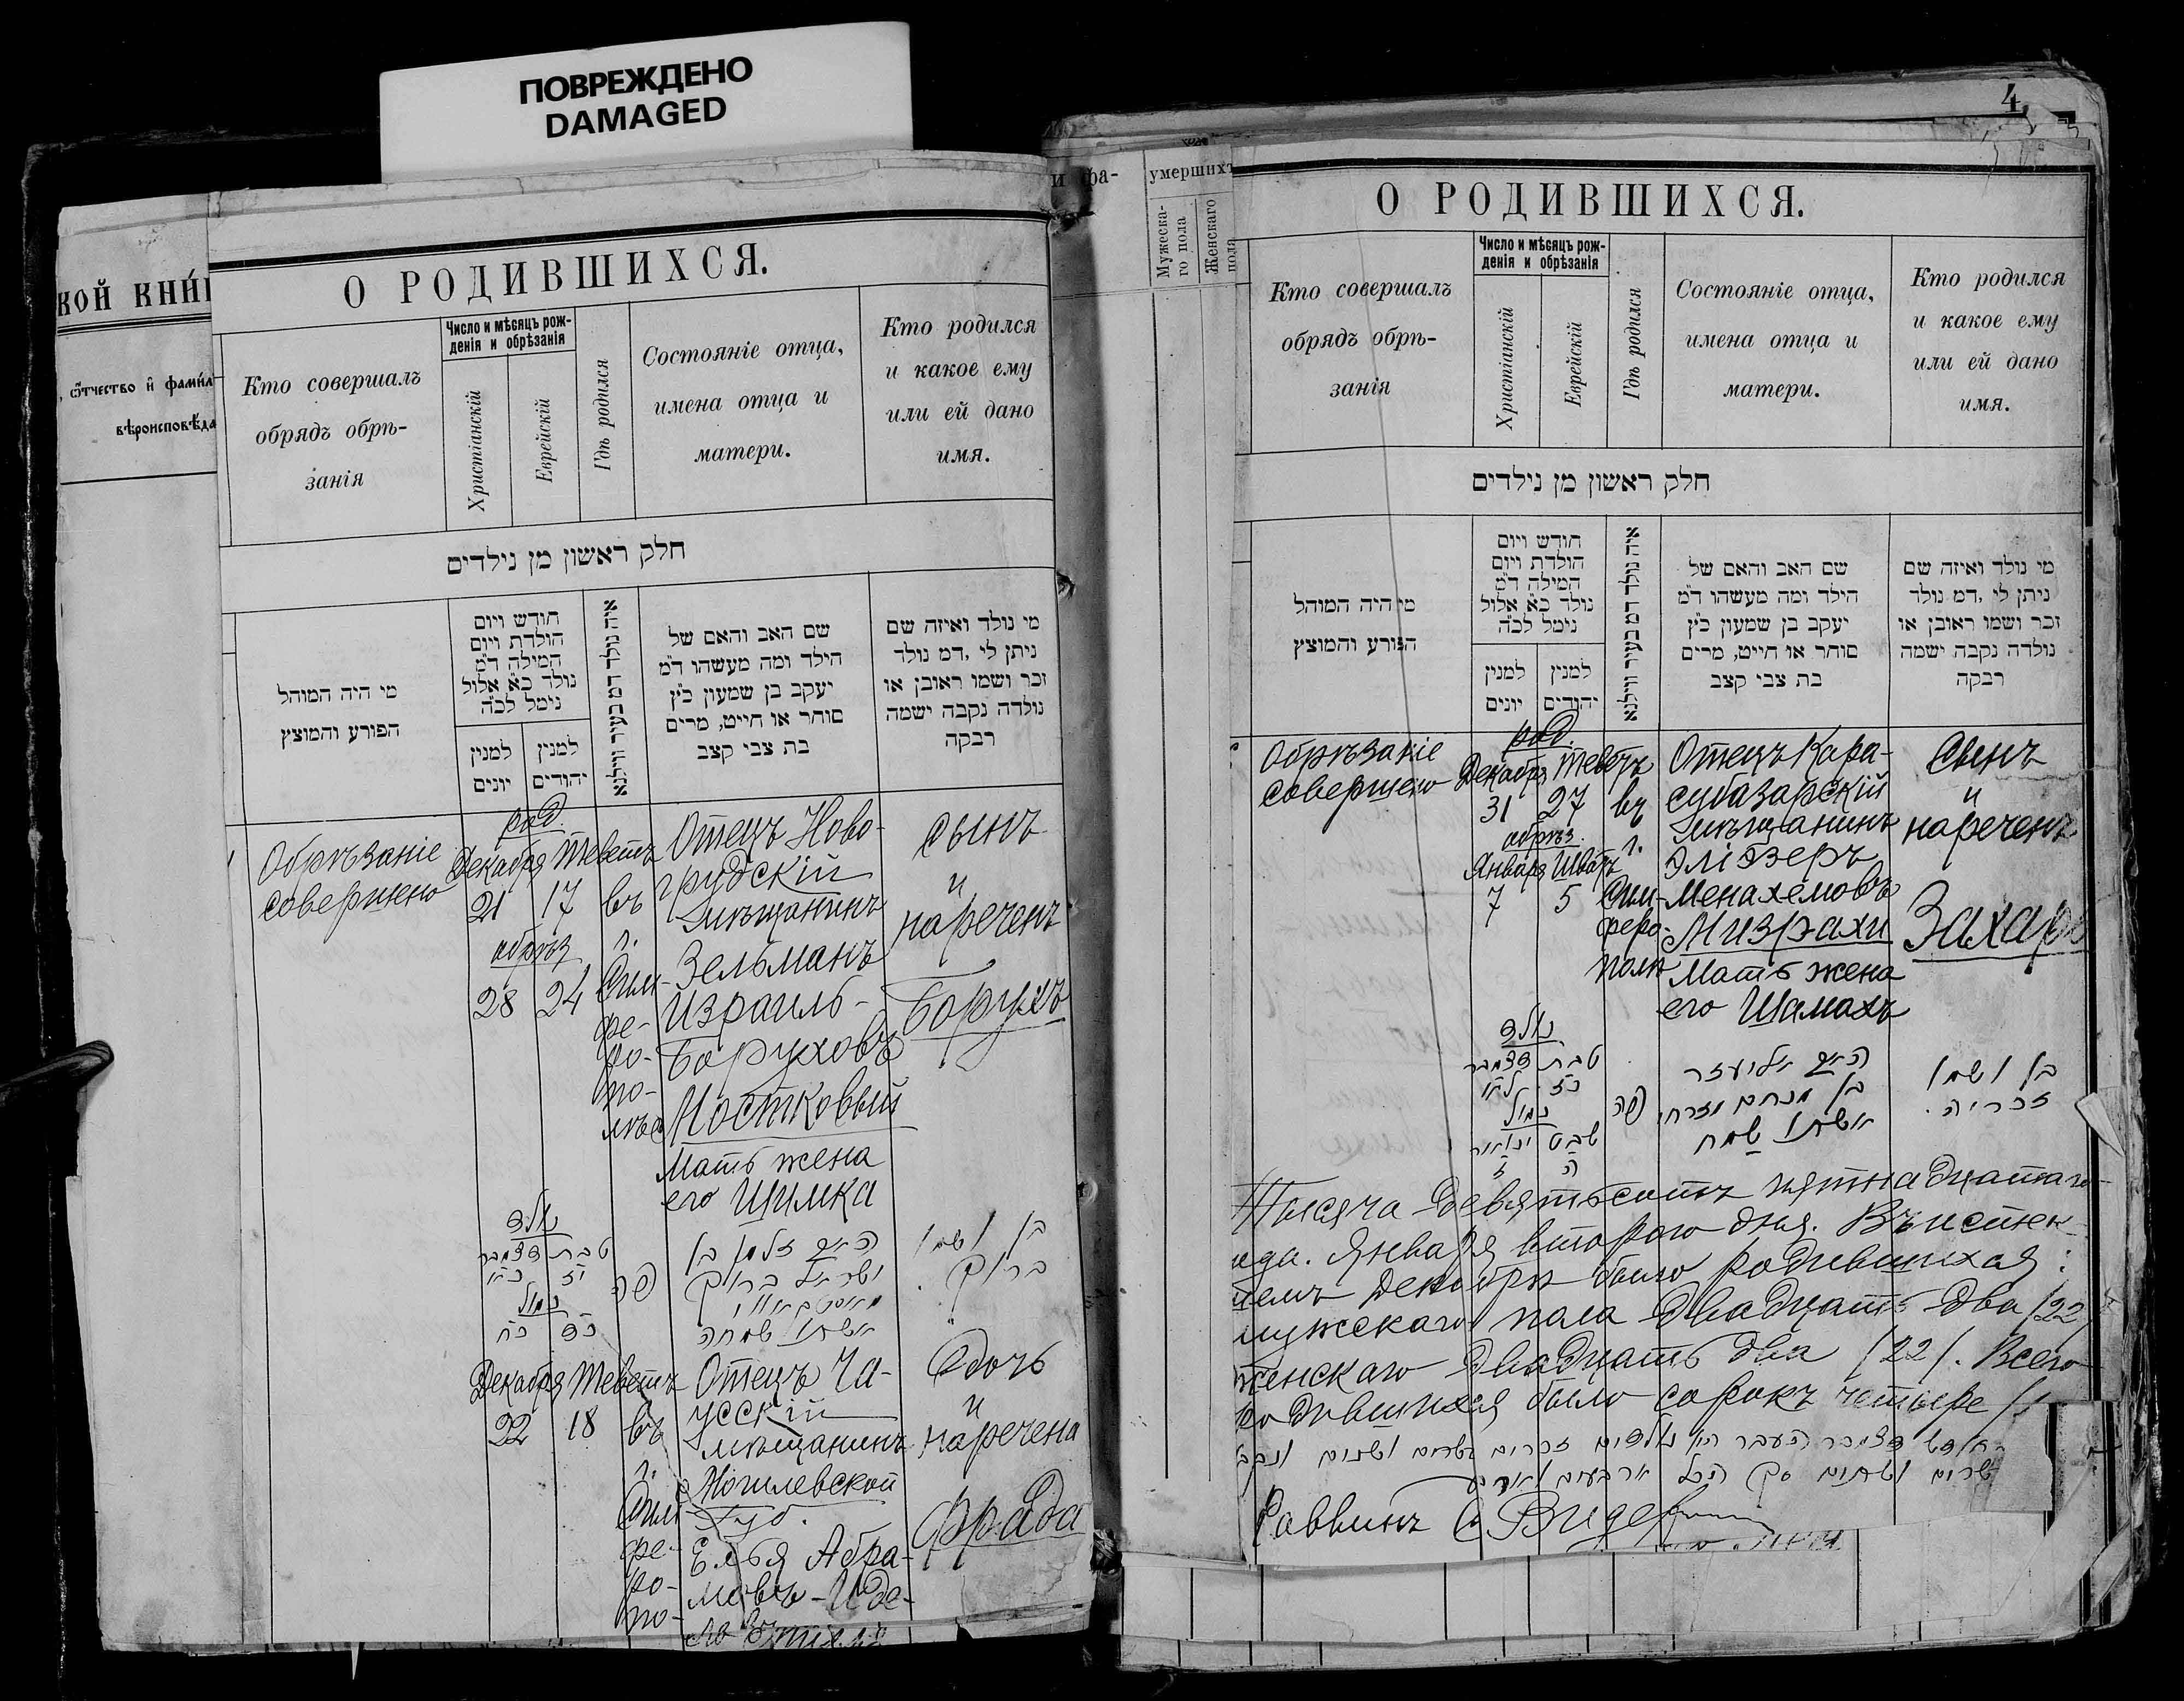 ПОВРЕЖДЕНО
DAMAGED
КОЙ КНИ́
, ѻтчество и҆ фами́л
вѣроисповѣда
О РОДИВШИХСЯ.
Кто совершалъ
обрядъ обрѣ-
занія
Число и мѣсяцъ рож-
денія и обрѣзанія
Христіанскій
Еврейскій
Гдѣ родился
Состояніе отца,
имена отца и
матери.
Кто родился
и какое ему
или ей дано
имя.
חלק ראשון מן נילדים
מי היה המוהל
הפורע והמוצץ
חודש ויום
הולדת ויום
המילה ד״מ
נולד כ״א אלול
נימל לכ״ה
למנין
יונים
למנין
יהודים
איה נולד דמ בעיר ווילנא
שם האב והאם של
הילד ומה מעשהו ד״מ
יעקב בן שמעון כ״ץ
סוחר או חייט, מרים
בת צבי קצב
מי נולד ואיזה שם
ניתן לי ,דמ נולד
זכר ושמו ראובן או
נולדה נקבה ישמה
רבקה
Обрѣзаніе
совершено
род.
Декабря Теветъ
21 17
обрѣз
28 24
въ
г.
Сим-
фе-
ро-
по-
лѣ
Отецъ Ново-
грудскій
мѣщанинъ
Зельманъ
Израиль-
Боруховъ
Мостковый
Мать жена
его Шимка
сынъ
и
нареченъ
Борухъ
נולד
טבת דצמבר
יז כא
נמול
כד כח
פה
האב זלמן בן
ישראל ברוך
אשתו שמחה
בן ושמו
ברוך.
Декабря Теветъ
22 18
въ
г.
Сим-
фе-
ро-
по-
Отецъ Ча-
усскій
мѣщанинъ
Могилевской
Губ.
Елья Абра-
мовъ-Иде-
Дочь
и
наречена
Фрада
и фа-
умершихъ
Мужеска-
го пола
Женскаго
пола
4
О РОДИВШИХСЯ.
Кто совершалъ
обрядъ обрѣ-
занія
Число и мѣсяцъ рож-
денія и обрѣзанія
Христіанскій
Еврейскій
Гдѣ родился
Состояніе отца,
имена отца и
матери.
Кто родился
и какое ему
или ей дано
имя.
חלק ראשון מן נילדים
מי היה המוהל
הפורע והמוצץ
חודש ויום
הולדת ויום
המילה ד״מ
נולד כ״א אלול
נימל לכ״ה
למנין
יונים
למנין
יהודים
איה נולד דמ בעיר ווילנא
שם האב והאם של
הילד ומה מעשהו ד״מ
יעקב בן שמעון כ״ץ
סוחר או חייט, מרים
בת צבי קצב
מי נולד ואיזה שם
ניתן לי ,דמ נולד
זכר ושמו ראובן או
נולדה נקבה ישמה
רבקה
Обрѣзаніе
совершено
род.
Декабря Теветъ
31 27
обрѣз.
Января Шватъ
7 5
въ
г.
Сим-
феро-
полѣ
Отецъ Кара-
субазарскій
мѣщанинъ
Эліэзеръ
Менахемовъ
Мизрахи
Мать жена
его Шамахъ
Сынъ
и
нареченъ
Захаръ
נולד
טבת דצמבר
כז לא
נמול
שבט ינואר
ה ז
פה
האב אליעזר
בן מנחם מזרחי
אשתו שמח
בן ושמו
זכריה.
Тысяча девятьсотъ пятнадцатаго
года. Января второго дня. Въ истек-
шемъ Декабрѣ было родившихся:
мужскаго пола двадцать два /22/
женскаго двадцать два /22/. Всего
родившихся было сорокъ четыре
דצמבר העבר היו נולדים זכרים עשרים ושנים ונקב
עשרים ושתים סך הכל ארבעים וארבע
Раввинъ С Видер